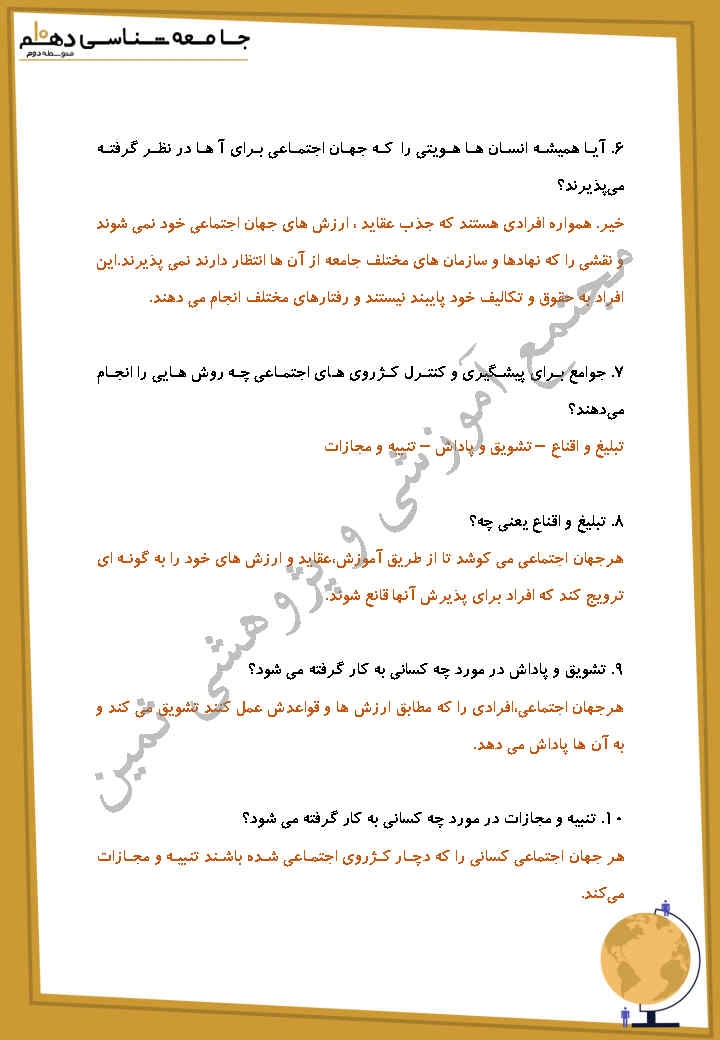 جامعه شناسی دهم
متوسطه دوم
۶. آیا همیشه انسان ها هویتی را که جهان اجتماعی برای آ ها در نظر گرفته
می‌پذیرند؟
خیر. همواره افرادی هستند که جذب عقاید ، ارزش های جهان اجتماعی خود نمی شوند
و نقشی را که نهادها و سازمان های مختلف جامعه از آن ها انتظار دارند نمی پذیرند.این
افراد به حقوق و تکالیف خود پایبند نیستند و رفتارهای مختلف انجام می دهند.
۷. جوامع برای پیشگیری و کنترل کژروی های اجتماعی چه روش هایی را انجام
می‌دهند؟
تبلیغ و اقناع – تشویق و پاداش – تنبیه و مجازات
۸. تبلیغ و اقناع یعنی چه؟
هرجهان اجتماعی می کوشد تا از طریق آموزش،عقاید و ارزش های خود را به گونه ای
ترویج کند که افراد برای پذیرش آنها قانع شوند.
۹. تشویق و پاداش در مورد چه کسانی به کار گرفته می شود؟
هرجهان اجتماعی،افرادی را که مطابق ارزش ها و قواعدش عمل کنند تشویق می کند و
به آن ها پاداش می دهد.
۱۰. تنبیه و مجازات در مورد چه کسانی به کار گرفته می شود؟
هر جهان اجتماعی کسانی را که دچار کژروی اجتماعی شده باشند تنبیه و مجازات
می‌کند.
مجتمع آموزشی و پژوهشی ثمین